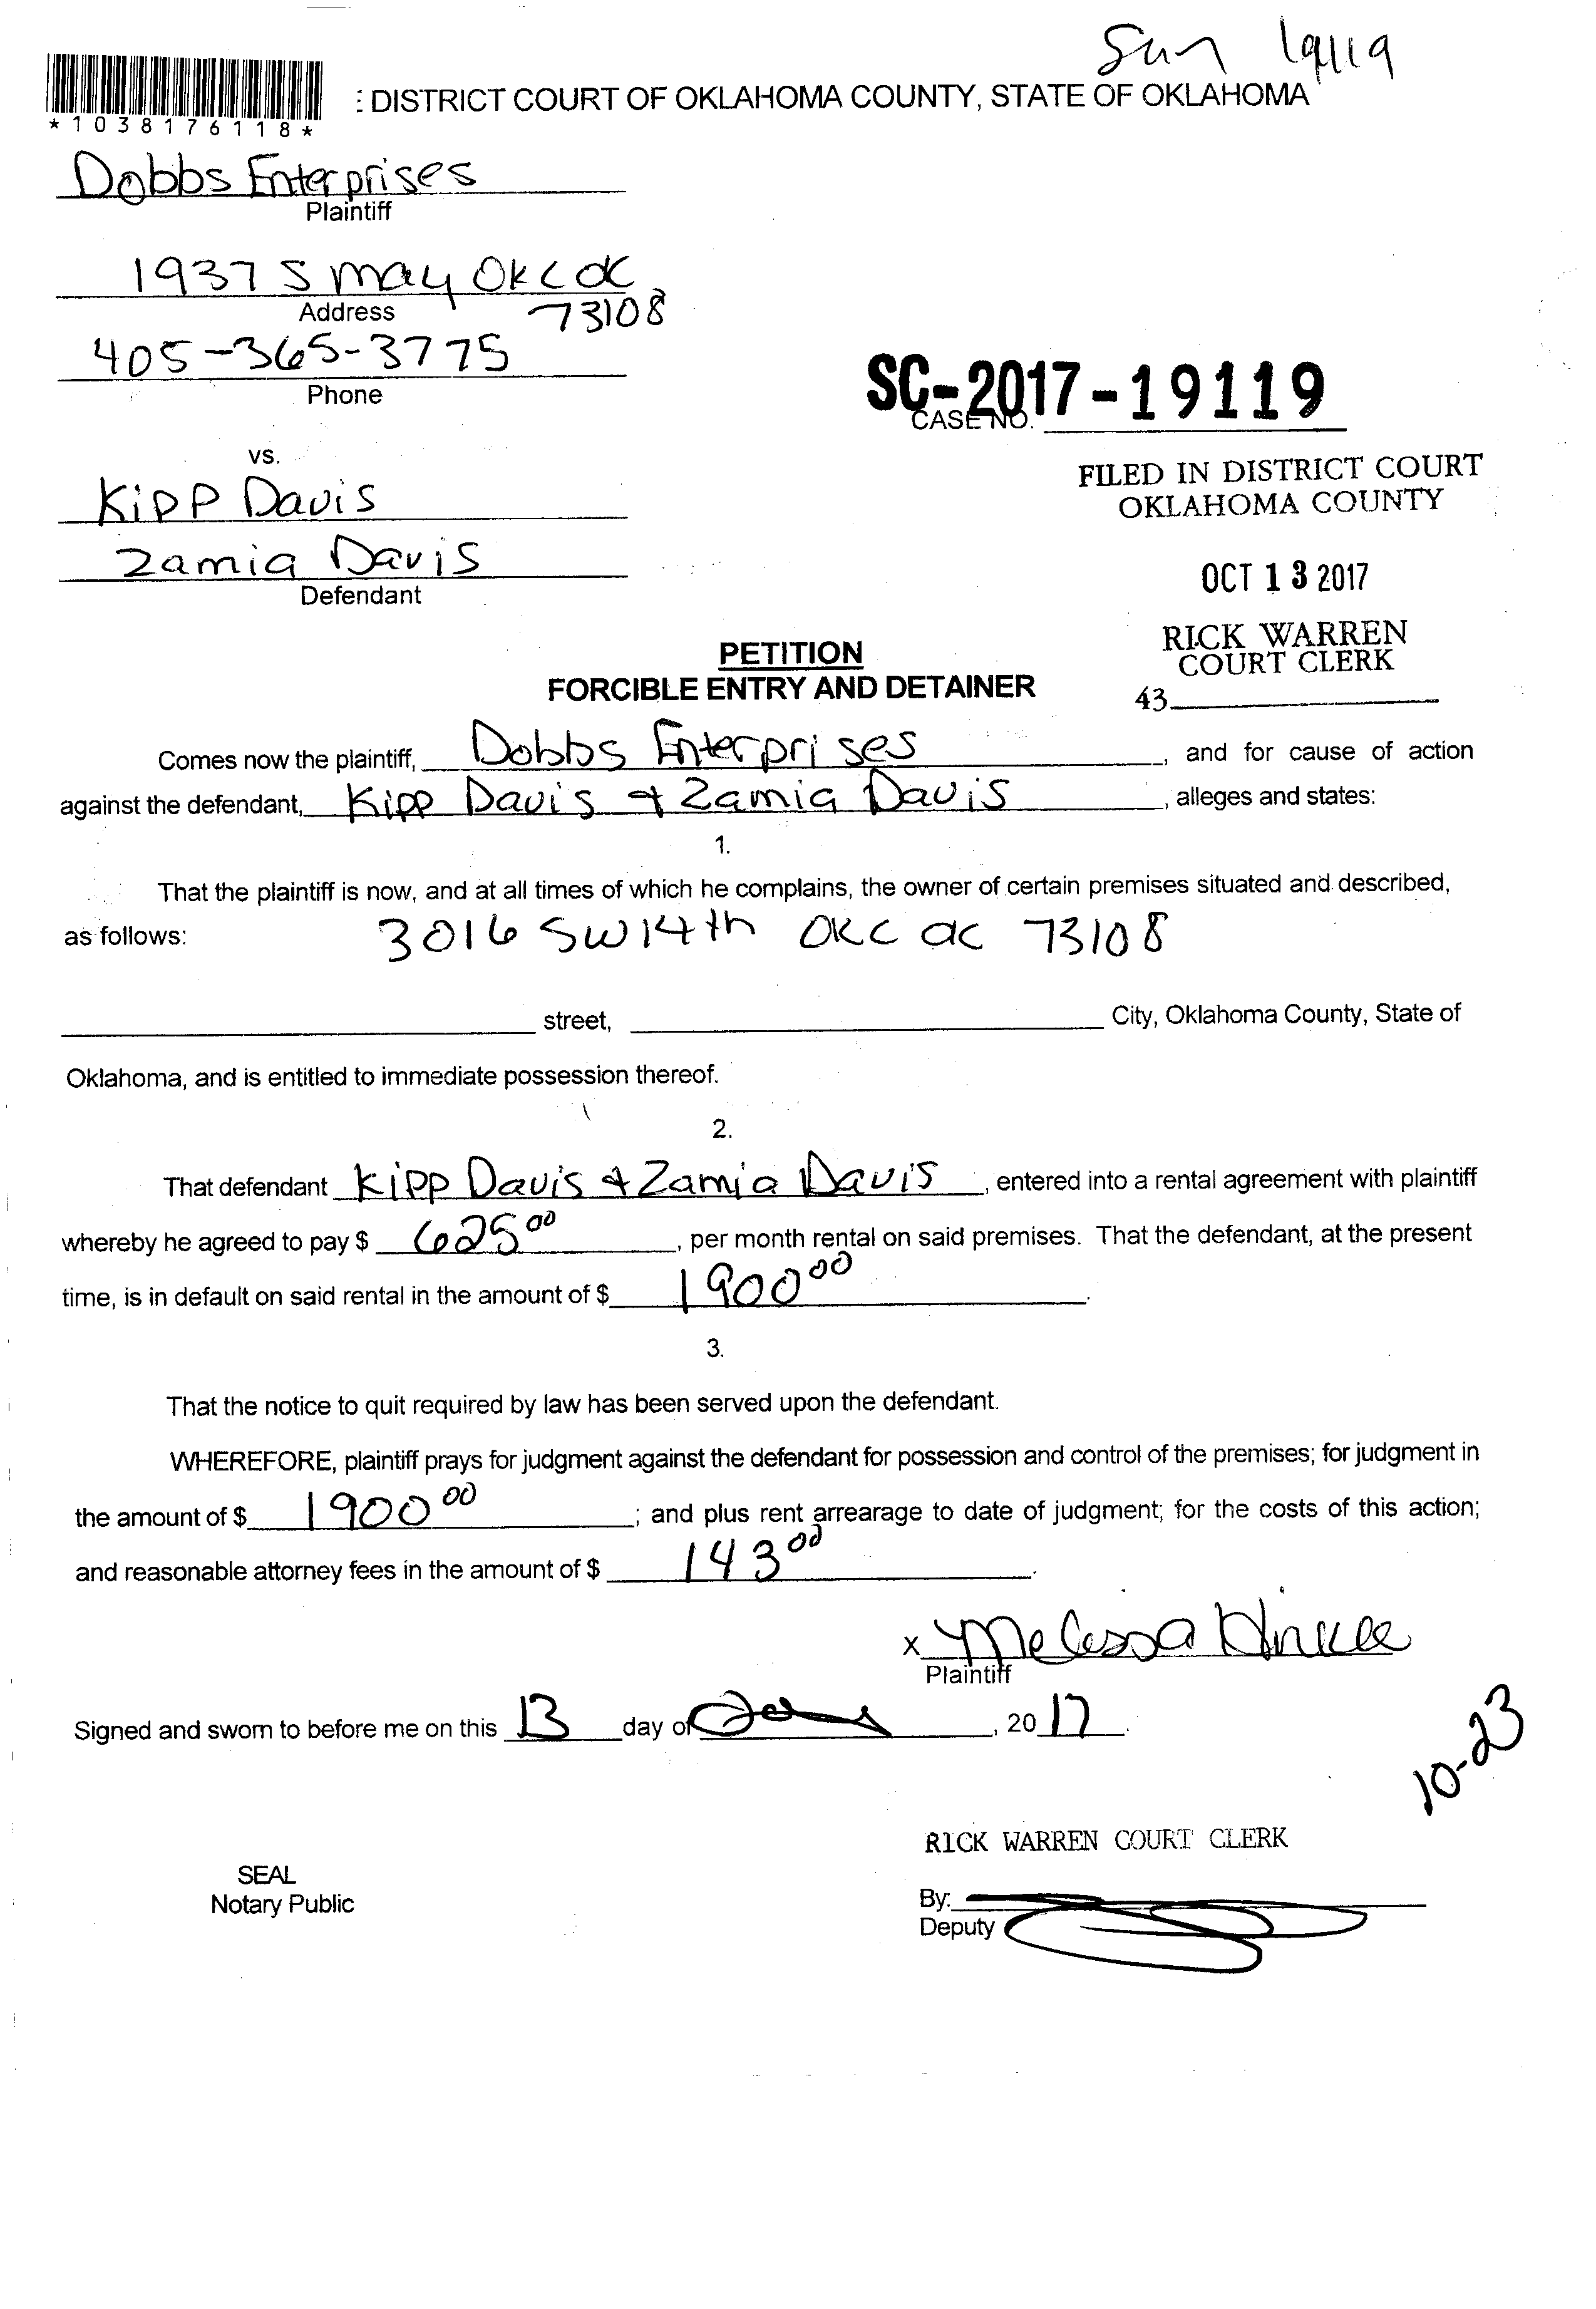 Sun 19119
: DISTRICT COURT OF OKLAHOMA COUNTY, STATE OF OKLAHOMA
*1038176118*
Dobbs Enterprises
Plaintiff
1937 S May OKC OK
Address 73108
405-365-3775
Phone
SC-2017-19119
CASE NO.
vs.
Kipp Davis
Zamia Davis
Defendant
FILED IN DISTRICT COURT
OKLAHOMA COUNTY
OCT 13 2017
RICK WARREN
COURT CLERK
43
PETITION
FORCIBLE ENTRY AND DETAINER
Comes now the plaintiff, Dobbs Enterprises, and for cause of action
against the defendant, Kipp Davis + Zamia Davis, alleges and states:
1.
That the plaintiff is now, and at all times of which he complains, the owner of certain premises situated and described,
as follows: 3016 SW 14th OKC OK 73108
street, City, Oklahoma County, State of
Oklahoma, and is entitled to immediate possession thereof.
2.
That defendant Kipp Davis + Zamia Davis, entered into a rental agreement with plaintiff
whereby he agreed to pay $ 625 00, per month rental on said premises. That the defendant, at the present
time, is in default on said rental in the amount of $ 1900 00.
3.
That the notice to quit required by law has been served upon the defendant.
WHEREFORE, plaintiff prays for judgment against the defendant for possession and control of the premises; for judgment in
the amount of $ 1900 00; and plus rent arrearage to date of judgment; for the costs of this action;
and reasonable attorney fees in the amount of $ 143 00.
x Melissa
Plaintiff
Signed and sworn to before me on this 13 day of , 20 17.
10-23
RICK WARREN COURT CLERK
SEAL
Notary Public
By:
Deputy